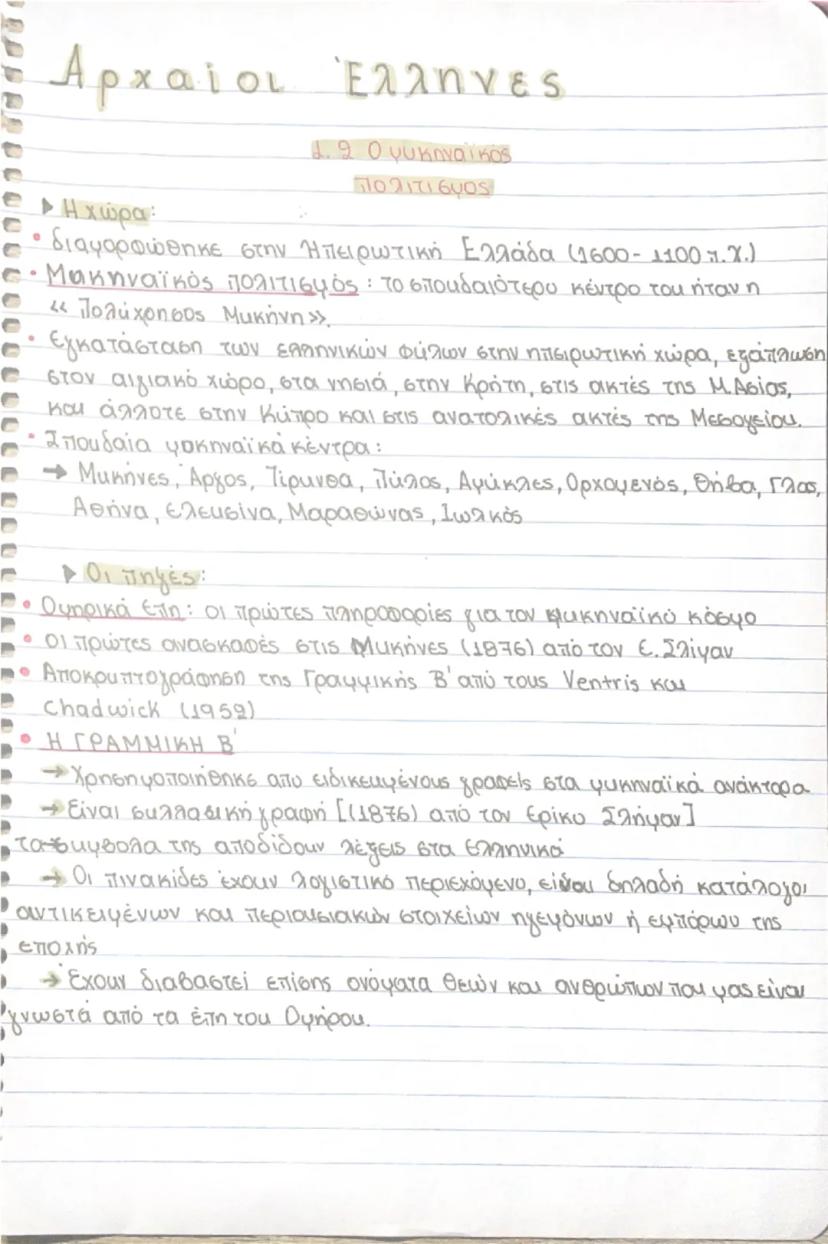 Αρχαίοι Έλληνες
1.2 Ο μυκηναϊκός
πολιτισμός
Η χώρα:
• διαμορφώθηκε στην Ηπειρωτική Ελλάδα (1600 - 1100 π.Χ.)
• Μυκηναϊκός πολιτισμός : το σπουδαιότερο κέντρο του ήταν η
« Πολύχρησος Μυκήνη ».
• Εγκατάσταση των ελληνικών φύλων στην ηπειρωτική χώρα, εξάπλωση
στον αιγιακό χώρο, στα νησιά, στην Κρήτη, στις ακτές της Μ.Ασίας,
και άλλοτε στην Κύπρο και στις ανατολικές ακτές της Μεσογείου.
• Σπουδαία μυκηναϊκά κέντρα :
→ Μυκήνες, Άργος, Τίρυνθα, Πύλος, Αμύκλες, Ορχομενός, Θήβα, Γλας,
Αθήνα, Ελευσίνα, Μαραθώνας, Ιωλκός
Οι πηγές :
• Ομηρικά Επη : οι πρώτες πληροφορίες για τον μυκηναϊκό κόσμο
• οι πρώτες ανασκαφές στις Μυκήνες (1876) από τον Ε. Σλίμαν
• Αποκρυπτογράφηση της Γραμμικής Β' από τους Ventris και
Chadwick (1952)
• Η ΓΡΑΜΜΙΚΗ Β'
→ Χρησημοποιήθηκε απο ειδικευμένους γραφείς στα μυκηναϊκά ανάκτορα
→ Είναι συλλαβική γραφή [(1876) από τον Ερίκο Σλήμαν]
τα συμβολα της αποδίδουν λέξεις στα Ελληνικά
→ Οι πινακίδες έχουν λογιστικό περιεχόμενο, είναι δηλαδή κατάλογοι
αντικειμένων και περιουσιακών στοιχείων ηγεμόνων ή εμπόρων της
εποχής
→ Έχουν διαβαστεί επίσης ονόματα θεών και ανθρώπων που μας είναι
γνωστά από τα έπη του Ομήρου.